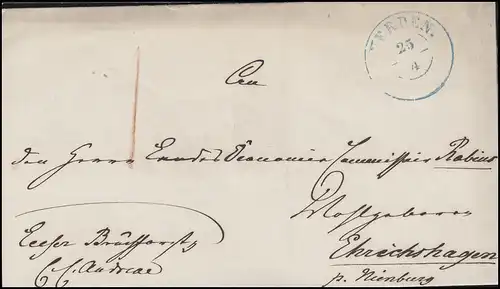 VERDEN.
25
4
An
den Herrn Landes Oeconomie Commissair Rabius
Wohlgeboren
Ehrichshagen
p. Nienburg
C. C. Andreae